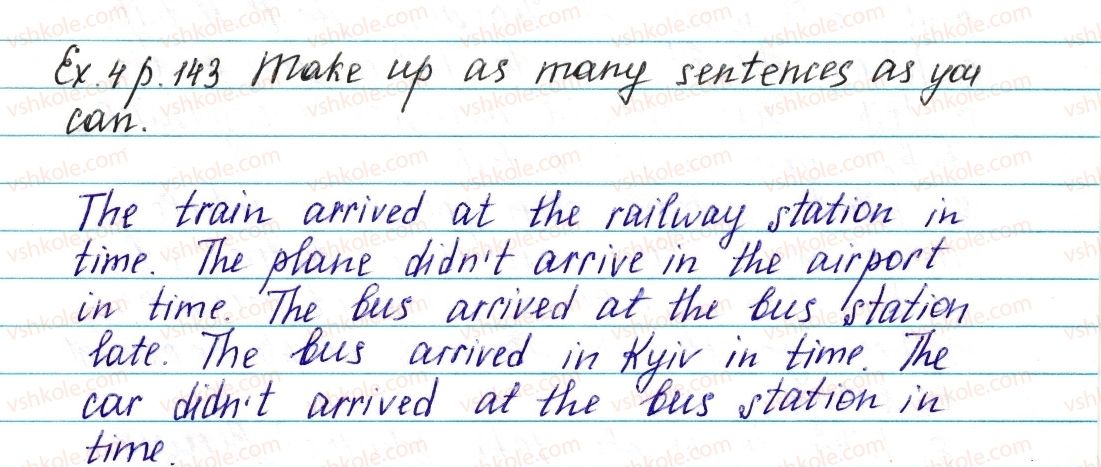 Ex. 4 p. 143 Make up as many sentences as you
can.
The train arrived at the railway station in
time. The plane didn't arrive in the airport
in time. The bus arrived at the bus station
late. The bus arrived in Kyiv in time. The
car didn't arrived at the bus station in
time.